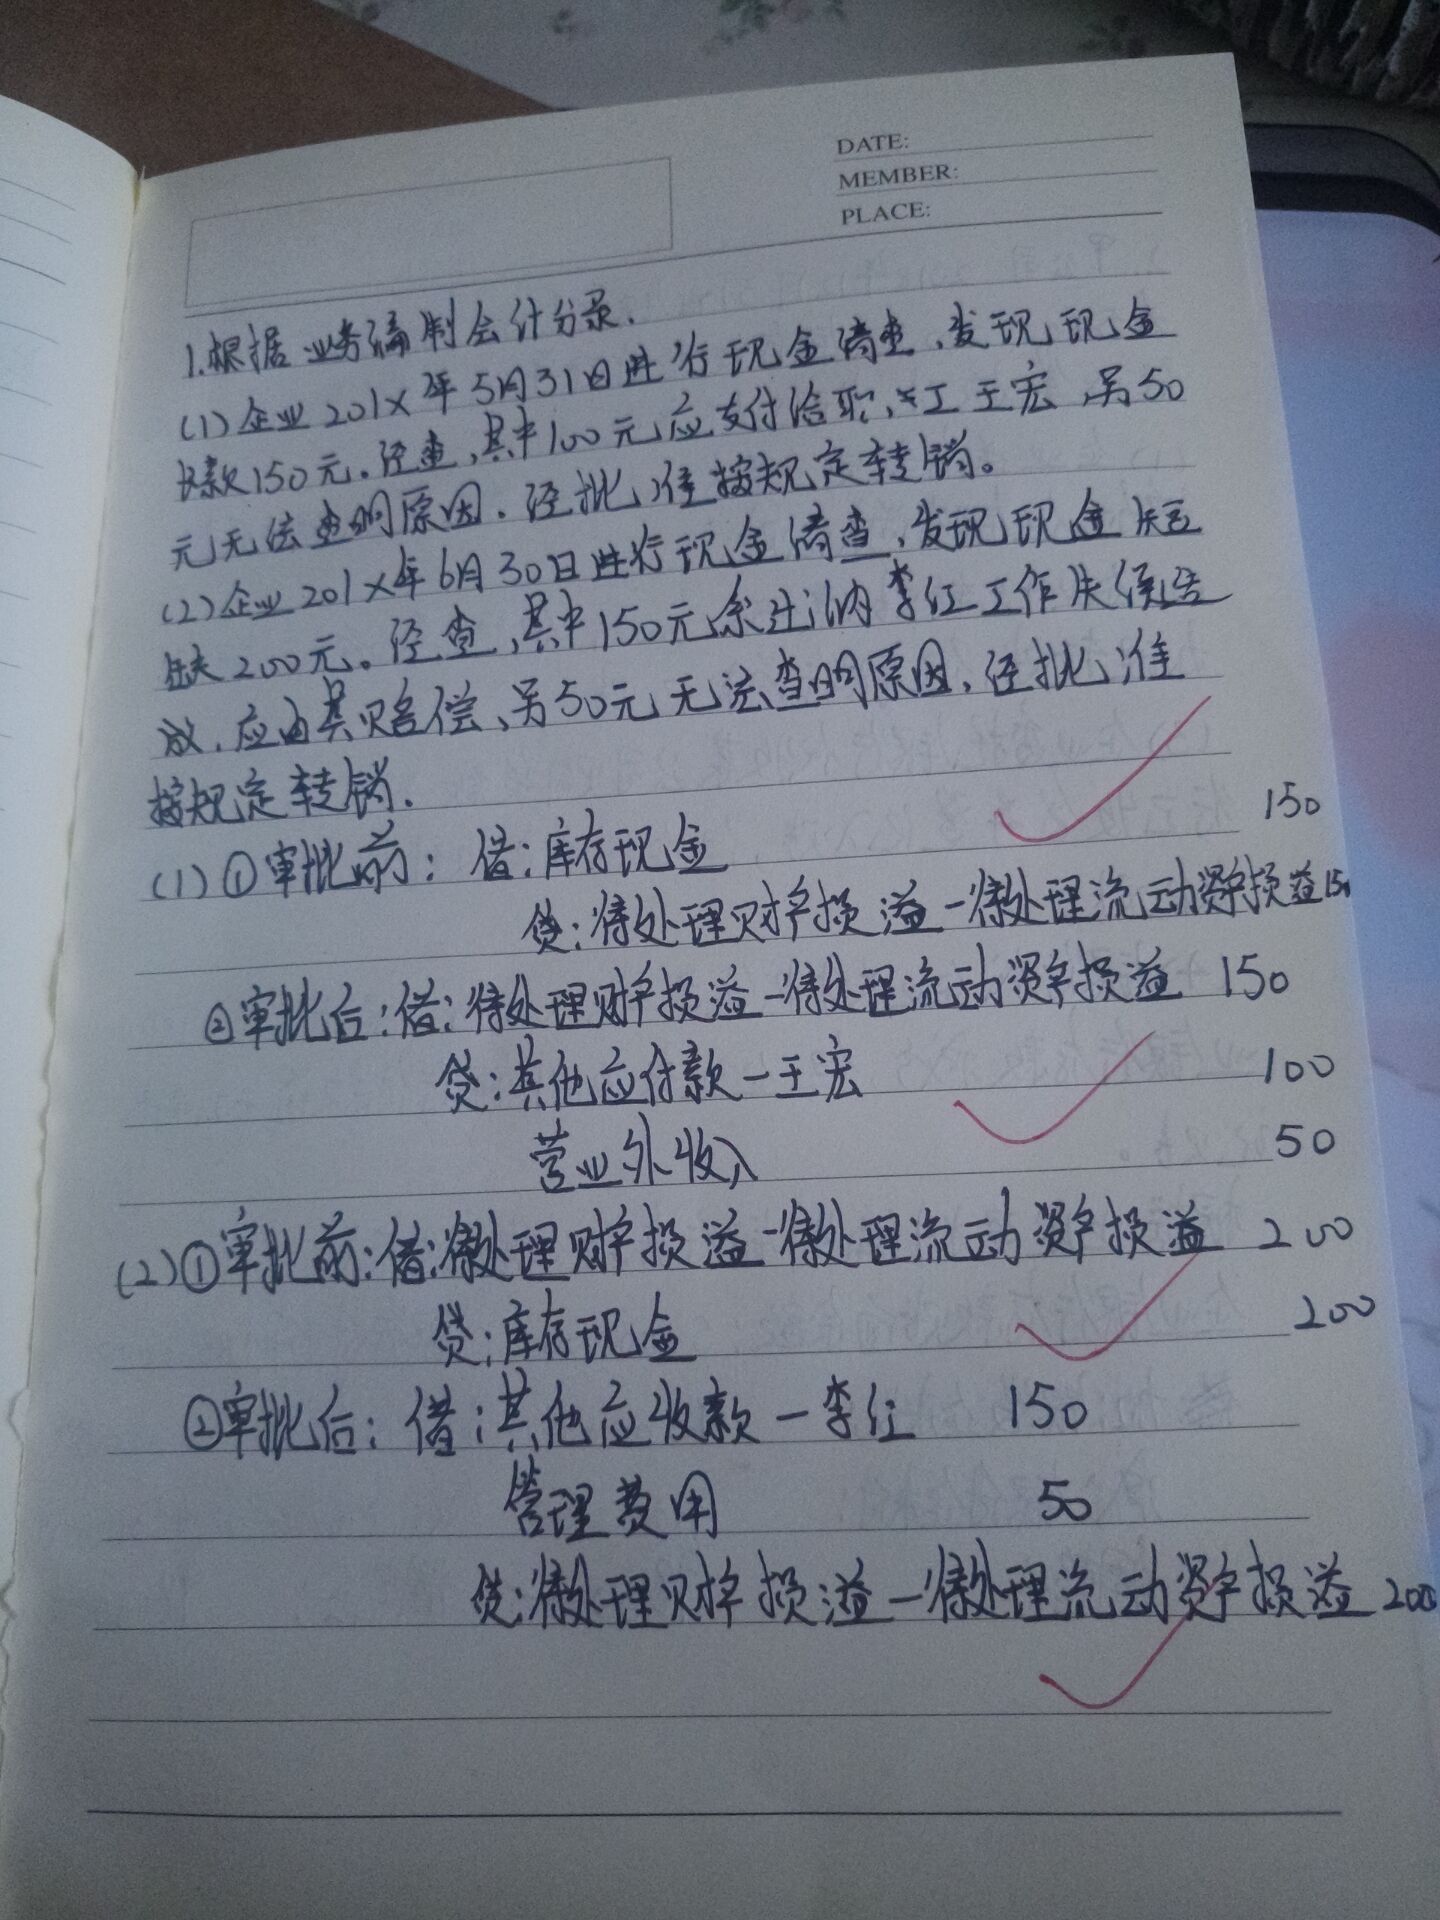 DATE:
MEMBER:
PLACE:
1.根据业务编制会计分录.
(1)企业201X年5月31日进行现金清查,发现现金
长款150元。经查,其中100元应支付给职工王宏,另50
元无法查明原因.经批准按规定转销。
(2)企业201X年6月30日进行现金清查,发现现金短
缺200元。经查,其中150元系出纳李红工作失误造
成,应由其赔偿,另50元无法查明原因,经批准
按规定转销.
(1)①审批前: 借:库存现金 150
贷:待处理财产损溢-待处理流动资产损溢150
②审批后:借:待处理财产损溢-待处理流动资产损溢 150
贷:其他应付款-王宏 100
营业外收入 50
(2)①审批前:借:待处理财产损溢-待处理流动资产损溢 200
贷:库存现金 200
②审批后: 借:其他应收款-李红 150
管理费用 50
贷:待处理财产损溢-待处理流动资产损溢 200